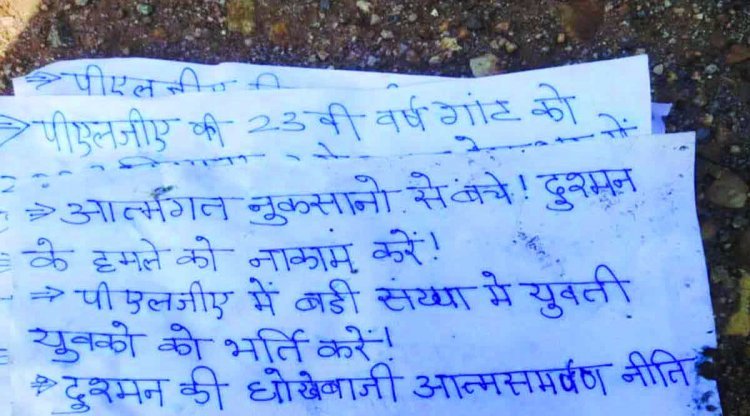 ⇒ पीएलजीए की
⇒ पीएलजीए की 23 वी वर्ष गांठ को
⇒ आत्मगत नुकसानो से बचे! दुश्मन
के हमले को नाकाम करें!
⇒ पीएलजीए में बडी संख्या मे युवती
युवको को भर्ति करें!
⇒ दुश्मन की धोखेबाजी आत्मसमर्पण नीति